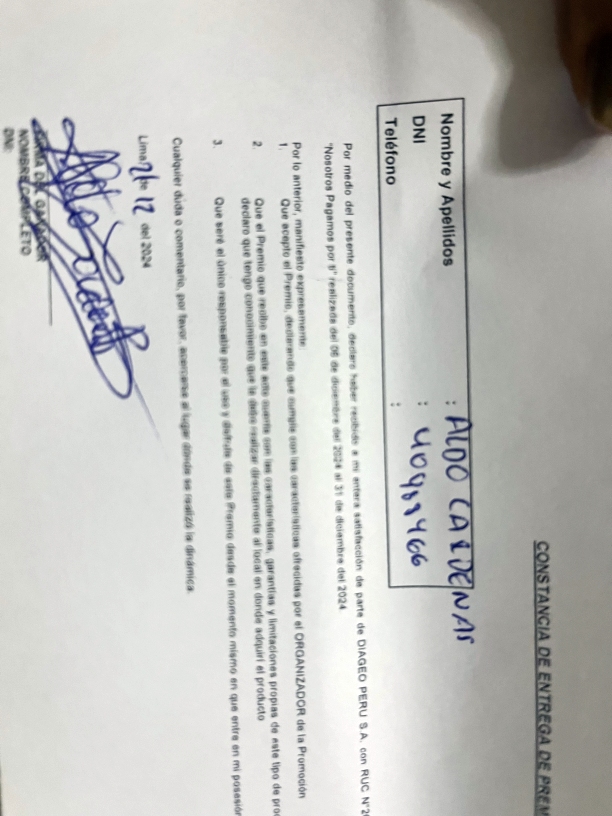 CONSTANCIA DE ENTREGA DE PREM
Nombre y Apellidos : ALDO CARDENAS
DNI :
Teléfono :
Por medio del presente documento, declaro haber recibido a mi entera satisfacción de parte de DIAGEO PERU S.A. con RUC N°20
"Nosotros Pagamos por ti" realizada del 06 de diciembre del 2024 al 31 de diciembre del 2024.
Por lo anterior, manifiesto expresamente:
1. Que acepto el Premio, declarando que cumple con las características ofrecidas por el ORGANIZADOR de la Promoción
2. Que el Premio que recibo en este acto cuenta con las características, garantías y limitaciones propias de este tipo de pro
declaro que tengo conocimiento que debo realizar directamente al local en donde adquirí el producto
3. Que seré el único responsable por el uso y disfrute de este Premio desde el momento mismo en que entre en mi posesión
Cualquier duda o comentario, por favor, acercarse al lugar donde se realizó la dinámica.
Lima, 21 de 12 del 2024
FIRMA DEL GANADOR
NOMBRE COMPLETO
DNI: